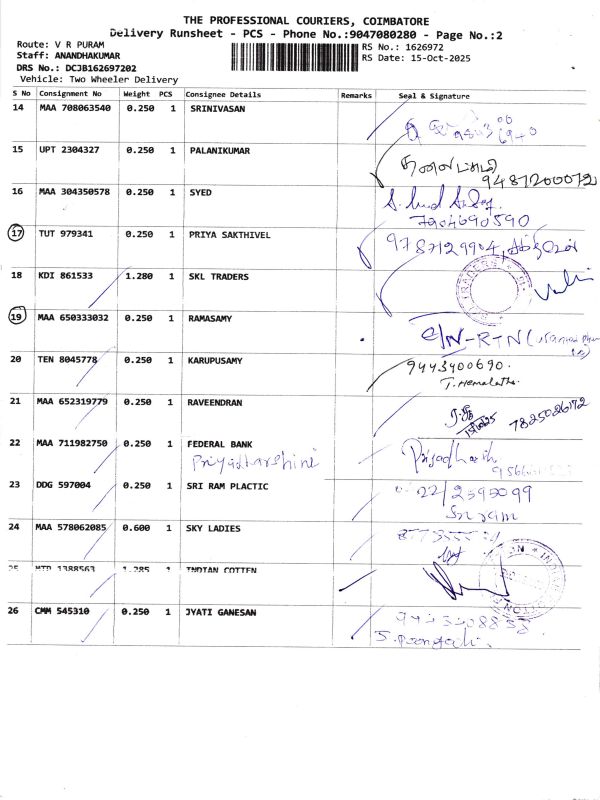 THE PROFESSIONAL COURIERS, COIMBATORE
Delivery Runsheet - PCS - Phone No.:9047080280 - Page No.:2
Route: V R PURAM
RS No.: 1626972
Staff: ANANDHAKUMAR
RS Date: 15-Oct-2025
DRS No.: DCJB162697202
Vehicle: Two Wheeler Delivery
S No Consignment No Weight PCS Consignee Details Remarks Seal & Signature
14 MAA 708063540 0.250 1 SRINIVASAN
15 UPT 2304327 0.250 1 PALANIKUMAR
9487200072
16 MAA 304350578 0.250 1 SYED
7904690590
17 TUT 979341 0.250 1 PRIYA SAKTHIVEL
9787129904,
18 KDI 861533 1.280 1 SKL TRADERS
19 MAA 650333032 0.250 1 RAMASAMY
C/N-RTN
20 TEN 8045778 0.250 1 KARUPUSAMY 9443400690.
T. Hemalatha.
21 MAA 652319779 0.250 1 RAVEENDRAN
7825026172
22 MAA 711982750 0.250 1 FEDERAL BANK
Priyadharshini
23 DDG 597004 0.250 1 SRI RAM PLACTIC
0422/2595099
Sriram
24 MAA 578062085 0.600 1 SKY LADIES
25 MTP 1388563 1.285 1 INDIAN COTTEN
26 CMM 545310 0.250 1 JYATI GANESAN